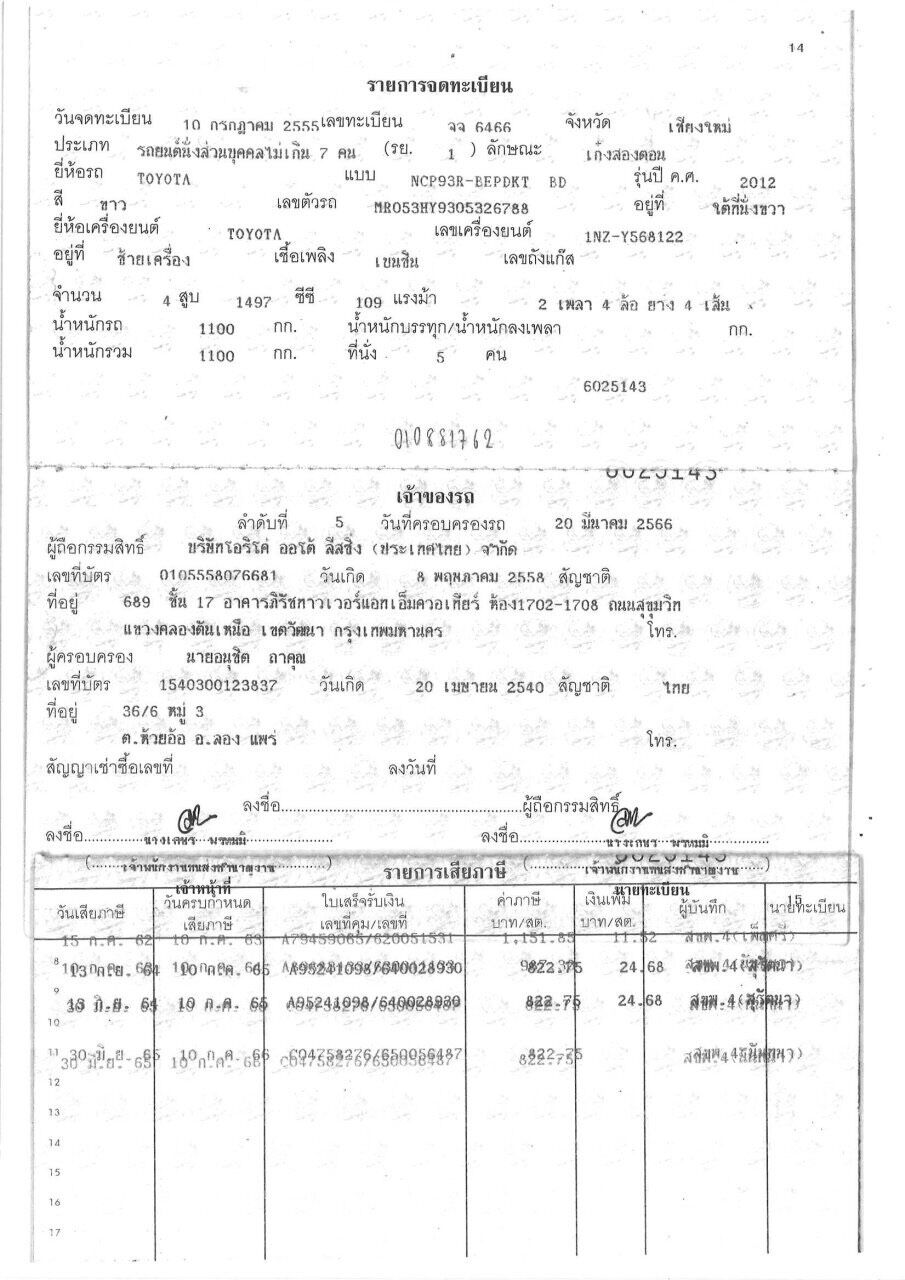 14
รายการจดทะเบียน
วันจดทะเบียน 10 กรกฎาคม 2555 เลขทะเบียน จจ 6466 จังหวัด เชียงใหม่
ประเภท รถยนต์นั่งส่วนบุคคลไม่เกิน 7 คน (รย. 1 ) ลักษณะ เก๋งสองตอน
ยี่ห้อรถ TOYOTA แบบ NCP93R-BEPDKT BD รุ่นปี ค.ศ. 2012
สี ขาว เลขตัวรถ MR053HY9305326788 อยู่ที่ ใต้ที่นั่งขวา
ยี่ห้อเครื่องยนต์ TOYOTA เลขเครื่องยนต์ 1NZ-Y568122
อยู่ที่ ซ้ายเครื่อง เชื้อเพลิง เบนซิน เลขถังแก๊ส
จำนวน 4 สูบ 1497 ซีซี 109 แรงม้า 2 เพลา 4 ล้อ ยาง 4 เส้น
น้ำหนักรถ 1100 กก. น้ำหนักบรรทุก/น้ำหนักลงเพลา กก.
น้ำหนักรวม 1100 กก. ที่นั่ง 5 คน
6025143
010881762
6025143
เจ้าของรถ
ลำดับที่ 5 วันที่ครอบครองรถ 20 มีนาคม 2566
ผู้ถือกรรมสิทธิ์ บริษัทโอริโค่ ออโต้ ลีสซิ่ง (ประเทศไทย) จำกัด
เลขที่บัตร 0105558076681 วันเกิด 8 พฤษภาคม 2558 สัญชาติ
ที่อยู่ 689 ชั้น 17 อาคารภิรัชทาวเวอร์แอทเอ็มควอเทียร์ ห้อง1702-1708 ถนนสุขุมวิท
แขวงคลองตันเหนือ เขตวัฒนา กรุงเทพมหานคร โทร.
ผู้ครอบครอง นายอนุชิต ถาคุณ
เลขที่บัตร 1540300123837 วันเกิด 20 เมษายน 2540 สัญชาติ ไทย
ที่อยู่ 36/6 หมู่ 3
ต.ห้วยอ้อ อ.ลอง แพร่ โทร.
สัญญาเช่าซื้อเลขที่ ลงวันที่
ลงชื่อ ผู้ถือกรรมสิทธิ์
ลงชื่อ นางเกษร ลงชื่อ นางเกษร
เจ้าหน้าที่ นายทะเบียน
รายการเสียภาษี
15
วันเสียภาษี วันครบกำหนดเสียภาษี ใบเสร็จรับเงิน เลขที่คุม/เลขที่ ค่าภาษี บาท/สต. เงินเพิ่ม บาท/สต. ผู้บันทึก นายทะเบียน
15 ก.ค. 62 10 ก.ค. 63 A79459065/620051531 1,151.85 11.52 สขพ.4
8
13 ก.ย. 64 10 ก.ค. 65 A95241098/640028930 822.75 24.68 สขพ.4(สุวัฒนา)
9
13 ก.ย. 64 10 ก.ค. 65 A95241098/640028930 822.75 24.68 สขพ.4(สุวัฒนา)
10
11 30 มิ.ย. 65 10 ก.ค. 66 C04758276/650056487 822.75 สขพ.4
30 มิ.ย. 65 10 ก.ค. 66 C04758276/650056487 822.75 สขพ.4
12
13
14
15
16
17